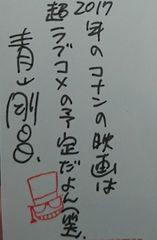 2017年のコナンの映画は
超ラブコメの予定だよん(笑)
青山剛昌